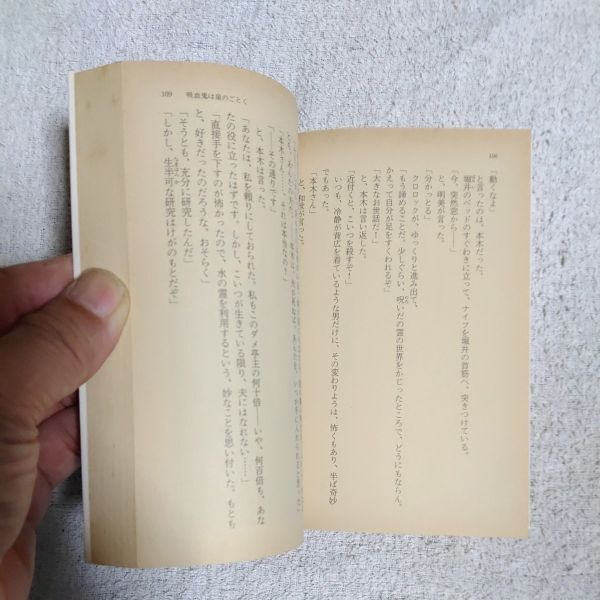 108
「動くなよ」
と言ったのは、本木だった。
堀井のベッドのすぐわきに立って、ナイフを堀井の首筋へ、突きつけている。
「今、突然窓から――」
と、明美が言った。
「分かっとる」
クロロックが、ゆっくりと進み出て、
「もう諦めることだ。少しぐらい、呪いだの霊の世界をかじったところで、どうにもならん。
かえって自分が足をすくわれるぞ」
「大きなお世話だ！」
と、本木は言い返した。
「近付くと、こいつを殺すぞ！」
いつも、冷静が背広を着ているような男だけに、その変わりようは、怖くもあり、半ば奇妙
でもあった。
「本木さん」
と、和世が言った。
109 吸血鬼は泉のごとく
「本木さん……。それは本当なの？」
「――その通りです」
と、本木は言った。
「あなたは、私を頼りにしておられた。私もこのダメ亭主の何十倍――いや、何百倍も、あな
たの役に立ったはずです。しかし、こいつが生きている限り、夫にはなれない……」
「直接手を下すのが怖かったので、水の霊を利用するという、妙なことを思い付いた。もとも
と、好きだったのだろうな、おそらく」
「そうとも。充分に研究したんだ」
「しかし、生半可な研究はけがのもとだぞ」